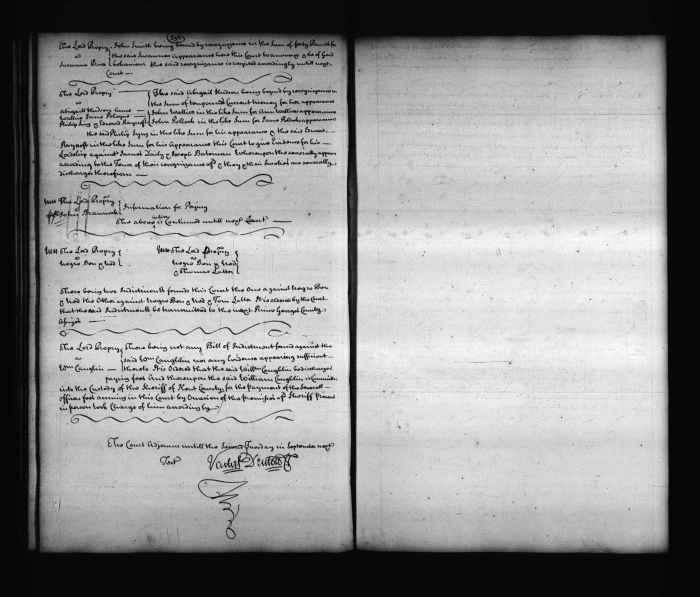 The Lord Propry John Smith being bound by recognizance in the Sum of forty Pounds for
the said Susannas appearance here this Court to answer & be of good
Susanna Price behaviour the said recognizance is respited accordingly untill next
Court
The Lord Propry The said Abigail Hudson being bound by recognizance in
the Sum of Current money for her appearance
Abigail Hudson John Wallice in the like Sum for Ann Wallice appearance
John Pollock in the like Sum for Jane Pollock appearance
Philip Syng & Edward
the said Philip Syng in the like Sum for his appearance & the said Edward
in the like Sum for his Appearance this Court to give Evidence for his
Lordship against James Daily & Joseph Bateman Whereupon they severally appear
according to the Tenor of their recognizances & they & their Sureties are severally
discharged therefrom
The Lord Propry
John Information for
The above action is Continued untill next Court
The Lord Propry The Lord Propry
vs vs
Negro Ben & Ned Negro Ben & Ned
& Thomas Latter
There being two Indictments found this Court the One against Negro Ben
& Ned the Other against Negro Ben & Ned & Tom Latter It is ordered by the Court
that the said Indictments be transmitted to the next Prince Georges County
Assizes
The Lord Propry There being not any Bill of Indictment found against the
vs said Wm Caughlin nor any Evidence appearing sufficient
Wm Caughlin thereto It is Ordered that the said Willm Caughlin be discharged
paying fees And thereupon the said William Caughlin is Committed
into the Custody of the Sheriff of Kent County for the Payment of the Several
officers fees arising in this Court by Occasion of the Premises & Sheriff
in person took Charge of him accordingly
The Court Adjourns untill the Second Tuesday in September next
Test Vachel Denton Clk